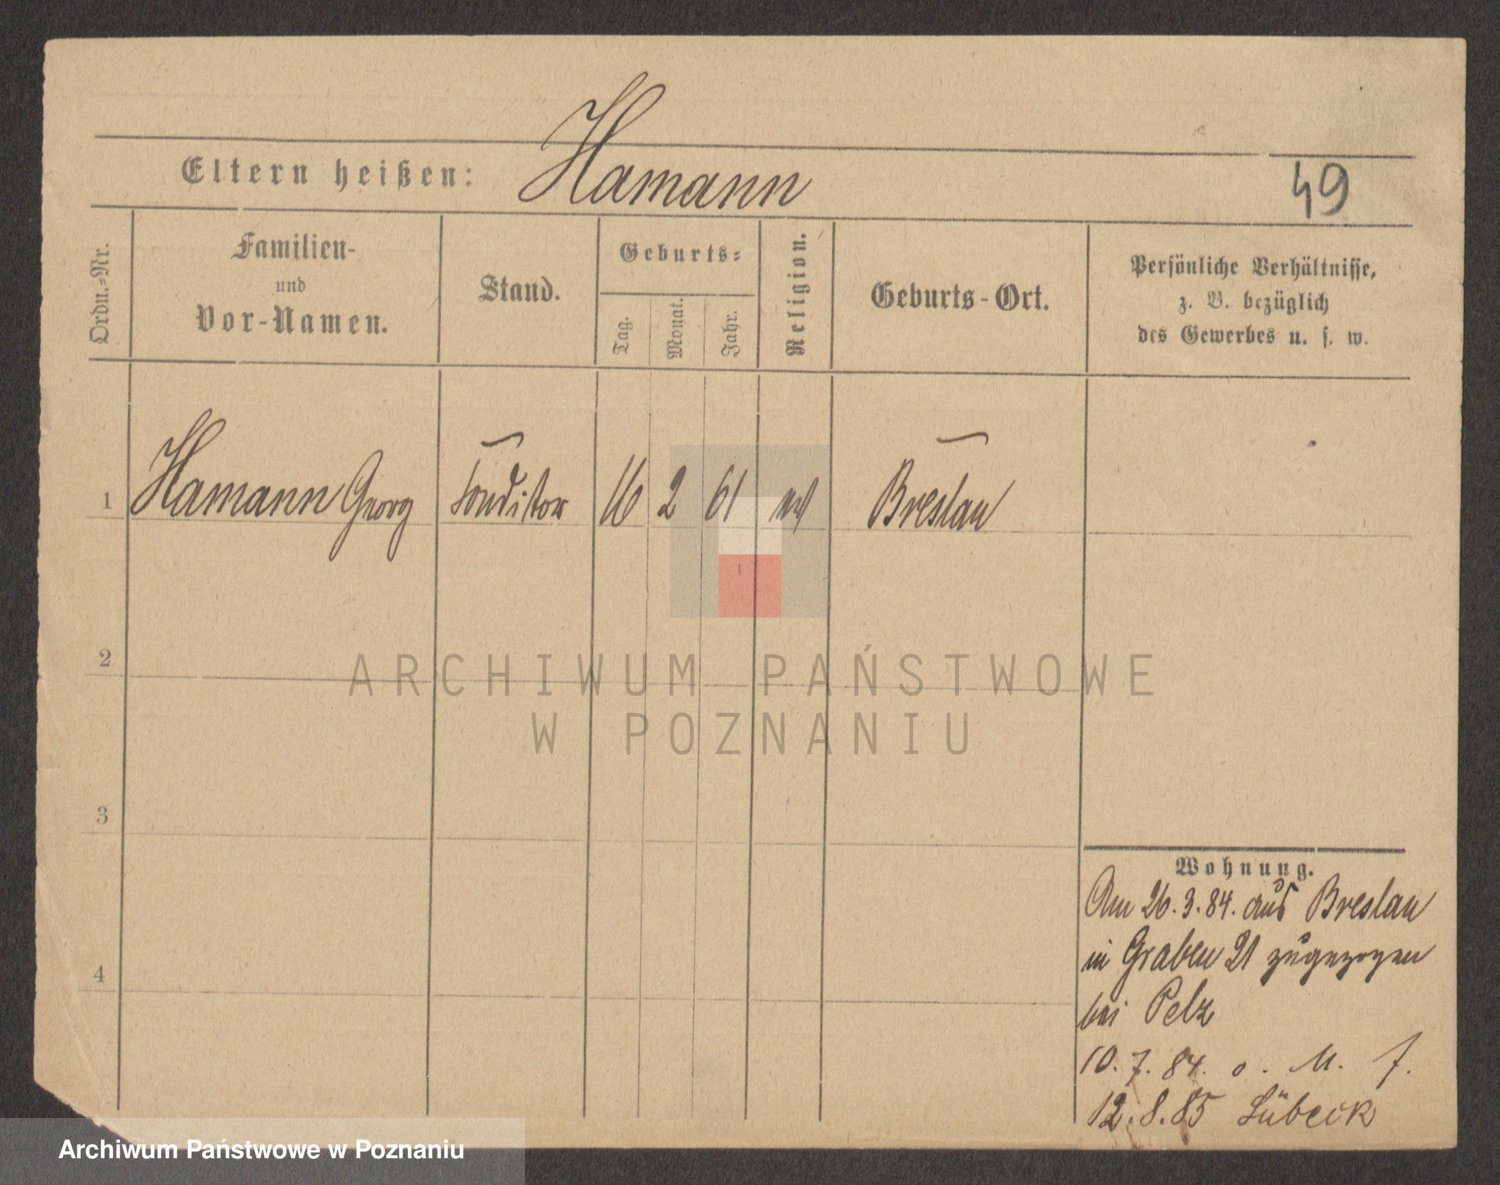 Eltern heißen: Hamann
49
Ordn.-Nr.
Familien-
und
Vor-Namen.
Stand.
Geburts-
Tag.
Monat.
Jahr.
Religion.
Geburts-Ort.
Persönliche Verhältnisse,
z. B. bezüglich
des Gewerbes u. s. w.
1 Hamann Georg Conditor 16 2 61 Breslau
2
3
4
ARCHIWUM PAŃSTWOWE
W POZNANIU
Wohnung.
Am 26.3.84. aus Breslau
in Graben 21 zugezogen
bei Pelz
10.7.84. o. M. f.
12.8.85 Lübeck
Archiwum Państwowe w Poznaniu